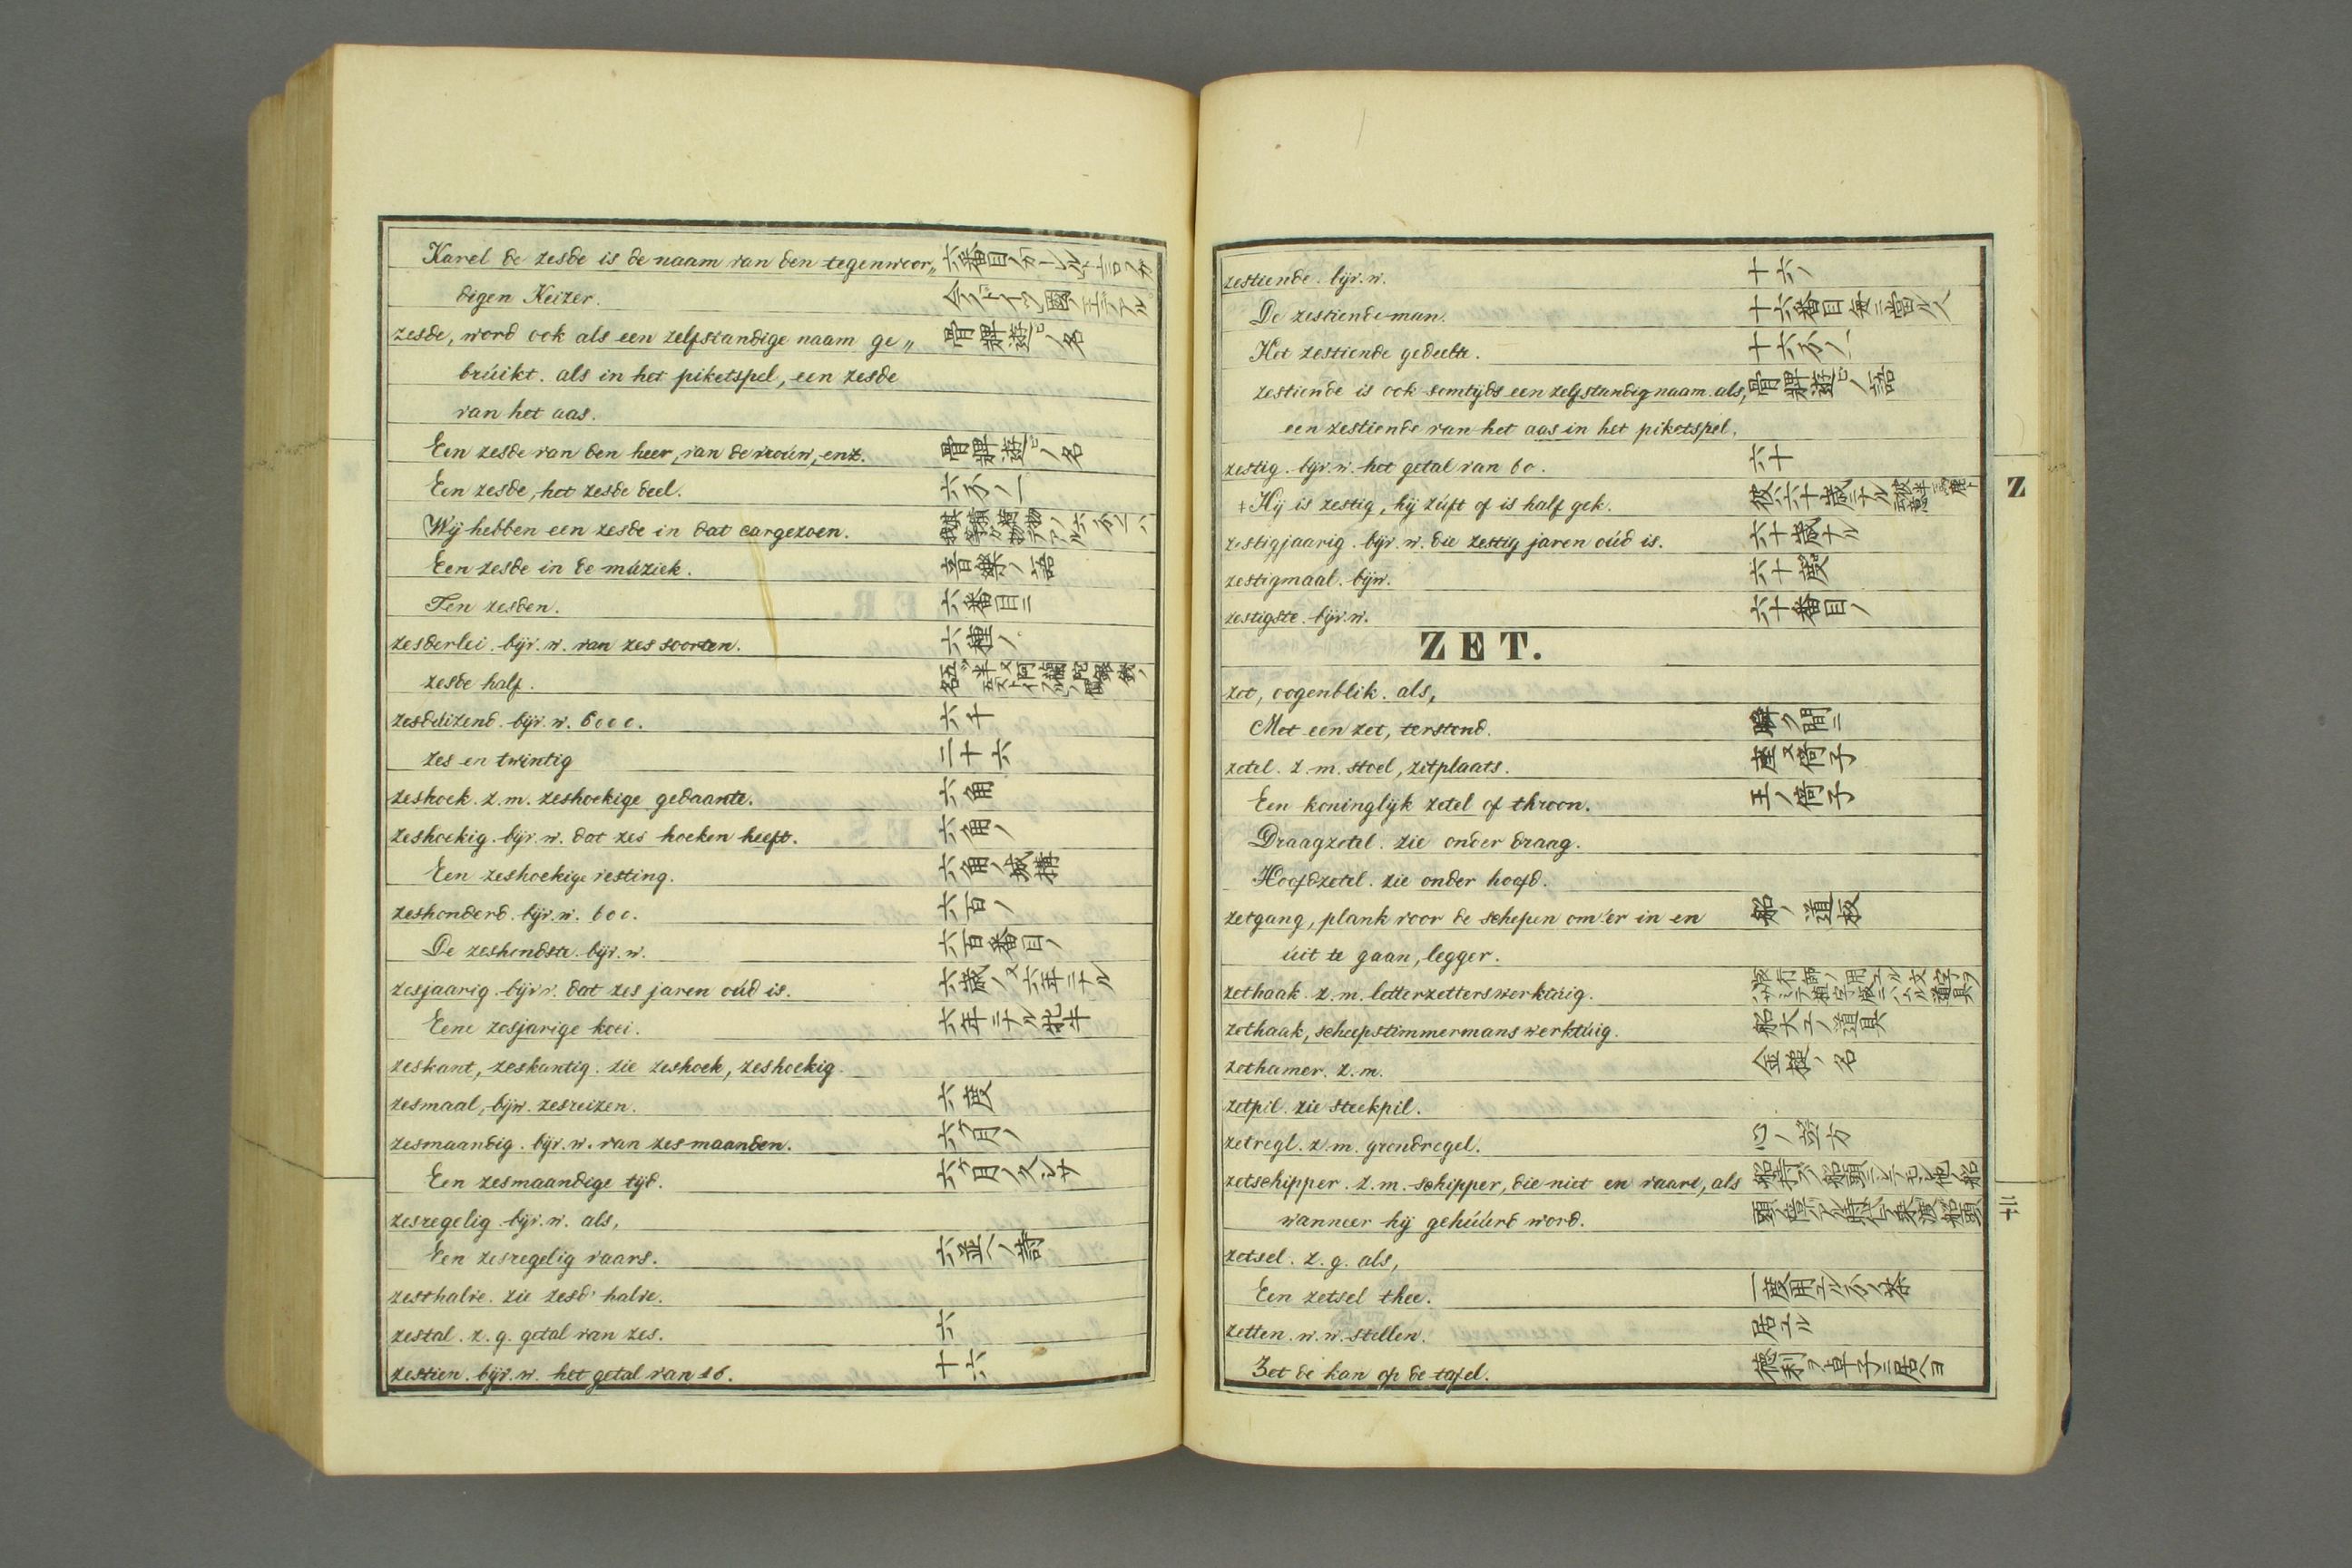 Karel de zesde is de naam van den tegenwoor„ 六番目ノカレル
digen Keizer.
zesde, word ook als een zelfstandige naam ge„ 骨牌遊ビノ名
brúikt. als in het piketspel, een zesde
van het aas.
Een zesde van den heer, van de vroúw, enz. 骨牌遊ビノ名
Een zesde, het zesde deel. 六分ノ一
Wij hebben een zesde in dat cargezoen.
Een zesde in de múziek. 音樂ノ語
Ten zesden. 六番目ニ
zesderlei. bijv. w. van zes soorten. 六種ノ
zesde half.
zesdúizend. bijv. w. 6000. 六千
zes en twintig 二十六
zeshoek. z. m. zeshoekige gedaante. 六角
zeshoekig. bijv. w. dat zes hoeken heeft. 六角ノ
Een zeshoekige vesting. 六角ノ城構
zeshonderd. bijv. w. 600. 六百ノ
De zeshondste. bijv. w. 六百番目ノ
zesjaarig. bijv. w. dat zes jaren oúd is. 六歳ノ又六年ニナル
Eene zesjarige koei. 六年ニナル牝牛
zeskant, zeskantig. zie zeshoek, zeshoekig.
zesmaal, bijw. zesreizen. 六度
zesmaandig. bijv. w. van zes maanden. 六ケ月ノ
Een zesmaandige tijd. 六ケ月ノ久シサ
zesregelig. bijv. w. als,
Een zesregelig vaars. 六並ヘノ詩
zesthalve. zie zesd' halve.
zestal. z. g. getal van zes. 六
zestien. bijv. w. het getal van 16. 十六
zestiende. bijv. w. 十六ノ
De zestiende man. 十六番目ニ當ル人
Het zestiende gedeelte. 十六分ノ一
zestiende is ook somtijds een zelfstandig naam. als, 骨牌遊ビノ語
een zestiende van het aas in het piketspel.
zestig. bijv. w. het getal van 60. 六十
‡ Hij is zestig, hij súft of is half gek. 彼六十歳ニナル
zestigjaarig. bijv. w. die zestig jaren oúd is. 六十歳ナル
zestigmaal. bijw. 六十度
zestigste. bijv. w. 六十番目ノ
ZET.
zet, oogenblik. als,
Met een zet, terstond. 瞬ク間ニ
zetel. z. m. stoel, zitplaats. 座又倚子
Een koninglijk zetel of throon. 王ノ倚子
Draagzetel. zie onder draag.
Hoofdzetel. zie onder hoofd.
zetgang, plank voor de schepen om 'er in en 船ノ道板
úit te gaan, legger.
zethaak. z. m. letterzetters werktúig.
zethaak, scheepstimmermans werktúig. 船大工ノ道具
zethamer. z. m. 金槌ノ名
zetpil. zie steekpil.
zetregl. z. m. grondregel.
zetschipper. z. m. schipper, die niet en vaart, als
wanneer hij gehúúrd word.
zetsel. z. g. als,
Een zetsel thee. 一度用ユル分ノ茶
zetten. w. w. stellen. 居ユル
Zet de kan op de tafel. 徳利ヲ卓子ニ居ヘヨ
Z